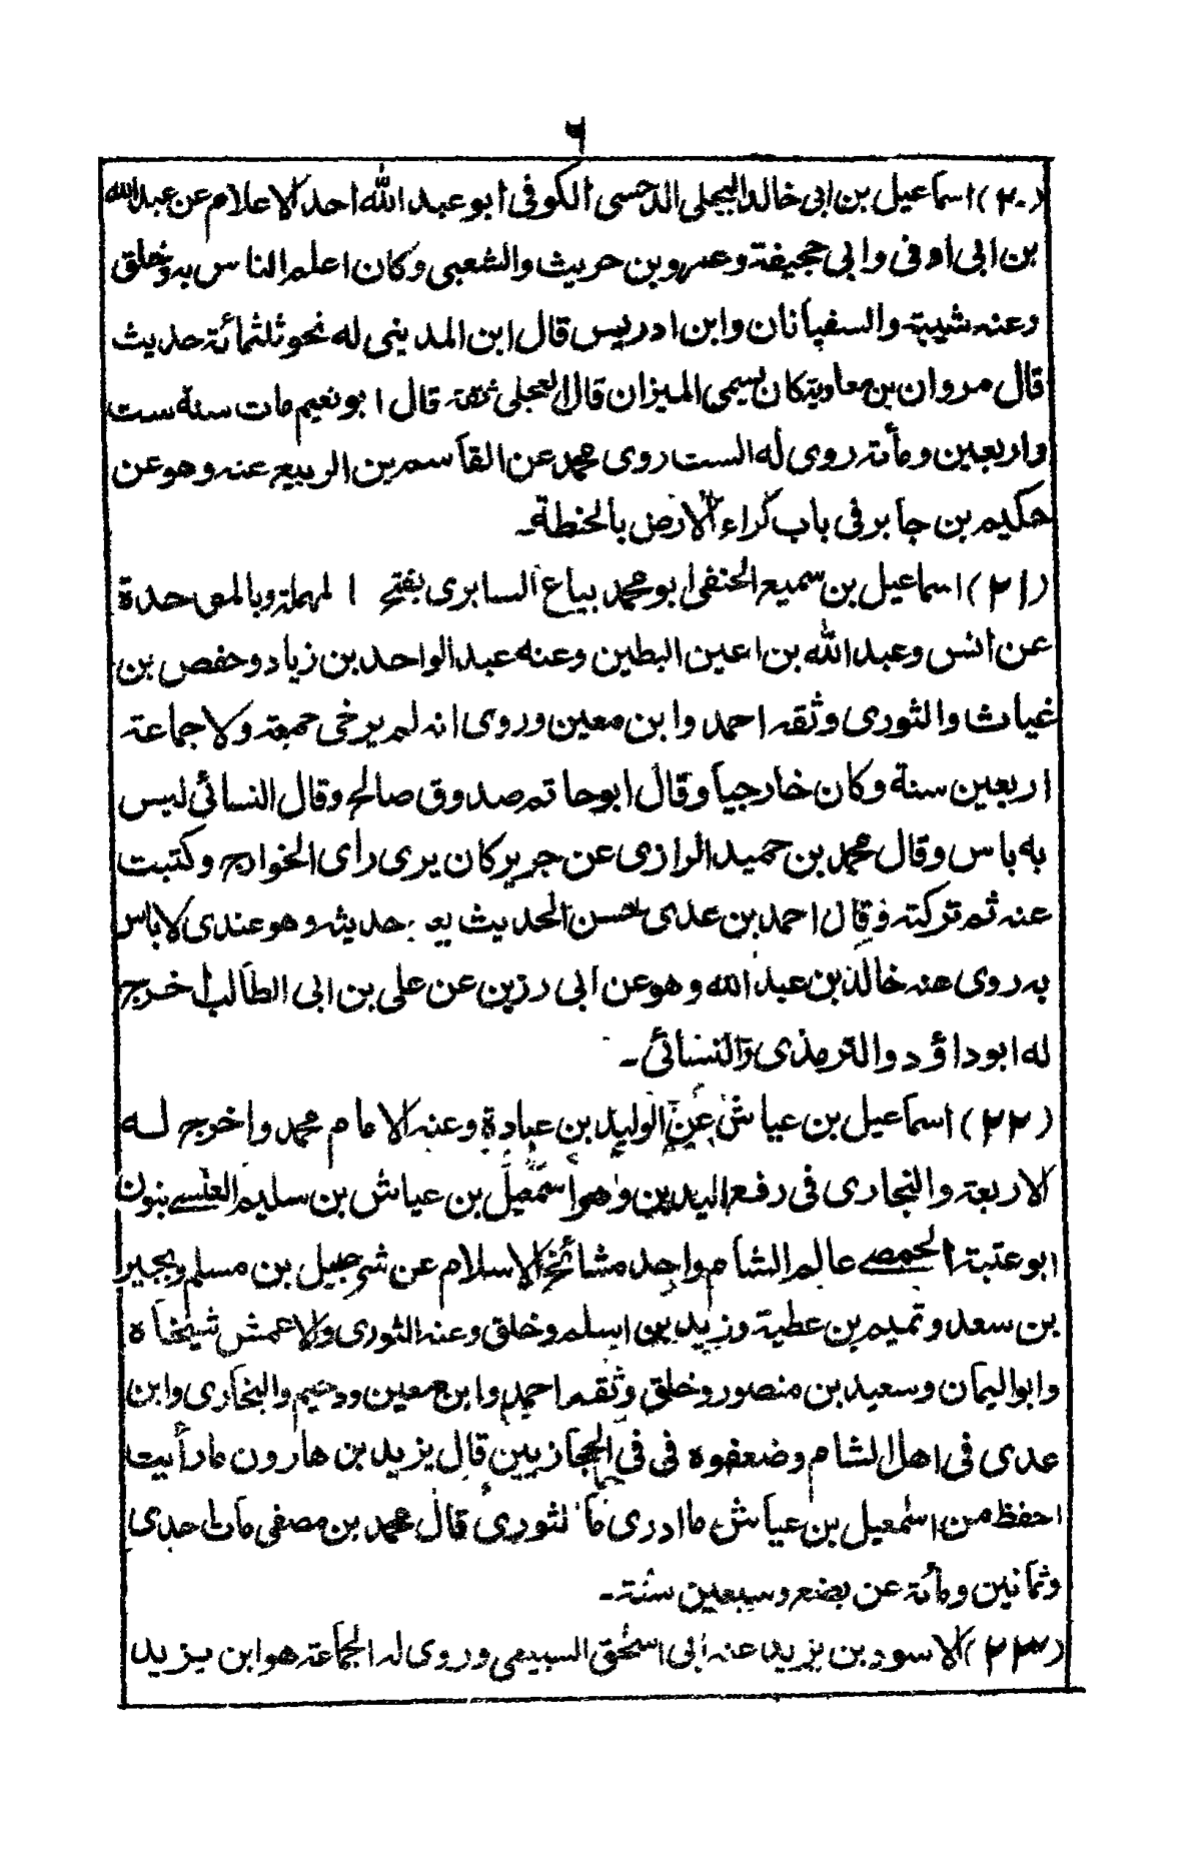 ٦
(٢٠) اسماعيل بن ابى خالد البجلى الاحمسى الكوفى ابو عبد الله احد الاعلام عن عبد الله
بن ابى اوفى وابى جحيفة وعمرو بن حريث والشعبى وكان اعلم الناس به وخلق
وعنه شيبة والسفيانان وابن ادريس قال ابن المدينى له نحو ثلثمائة حديث
قال مروان بن معاوية كان يسمى الميزان قال العجلى ثقة قال ابو نعيم مات سنة ست
واربعين ومأته روى له الست روى محمد عن القاسم بن الربيع عنه وهو عن
حكيم بن جابر فى باب كراء الارض بالحنطة۔
(٢١) اسماعيل بن سميع الحنفى ابو محمد بياع السابرى بفتح المهملة وبالموحدة
عن انس وعبد الله بن اعين البطين وعنه عبد الواحد بن زياد وحفص بن
غياث والثورى وثقه احمد وابن معين وروى انه لم ير خى جمعة ولا جماعة
اربعين سنة وكان خارجيا وقال ابو حاتم صدوق صالح وقال النسائى ليس
به باس وقال محمد بن حميد الرازى عن جرير كان يرى رأى الخوارج وكتبت
عنه ثم تركته وقال احمد بن عدى حسن الحديث حديثه وهو عندى لا باس
به روى عنه خالد بن عبد الله وهو عن ابى رزين عن على بن ابى الطالب اخرج
له ابو داؤد والترمذى والنسائى۔
(٢٢) اسماعيل بن عياش عن الوليد بن عبادة وعنه الامام محمد واخرج له
الاربعة والبخارى فى رفع اليدين وهو اسمعيل بن عياش بن سليم العنسے بنون
ابو عتبة الحمصے عالم الشام واحد مشائخ الاسلام عن شرحبيل بن مسلم وبحير ا
بن سعد وتميم بن عطية وزيد بن اسلم وخلق وعنه الثورى والاعمش شيخاه
وابو اليمان وسعيد بن منصور وخلق وثقه احمد وابن معين ودحيم والبخارى وابن
عدى فى اهل الشام وضعفوه فى فى الحجازيين قال يزيد بن هارون مارأيت
احفظ من اسمعيل بن عياش ما ادرى ما الثورى قال محمد بن مصفى مات احدى
وثمانين ومأئة عن بضع وسبعين سنة۔
(٢٣) الاسود بن يزيد عنه ابى اسحق السبيعى وروى له الجماعة هو ابن يزيد